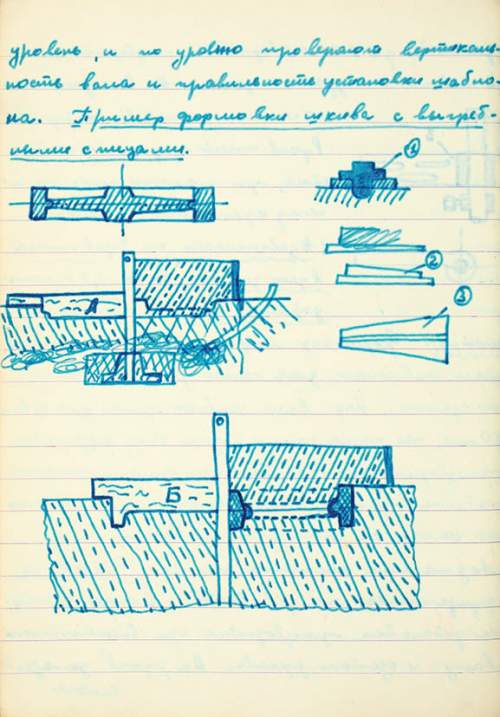 уровень, и по уровню проверяют вертикаль-
ность вала и правильность установки шабло-
на. Пример формовки шкива с выгреб-
ными спицами.
1
2
3
А
Б